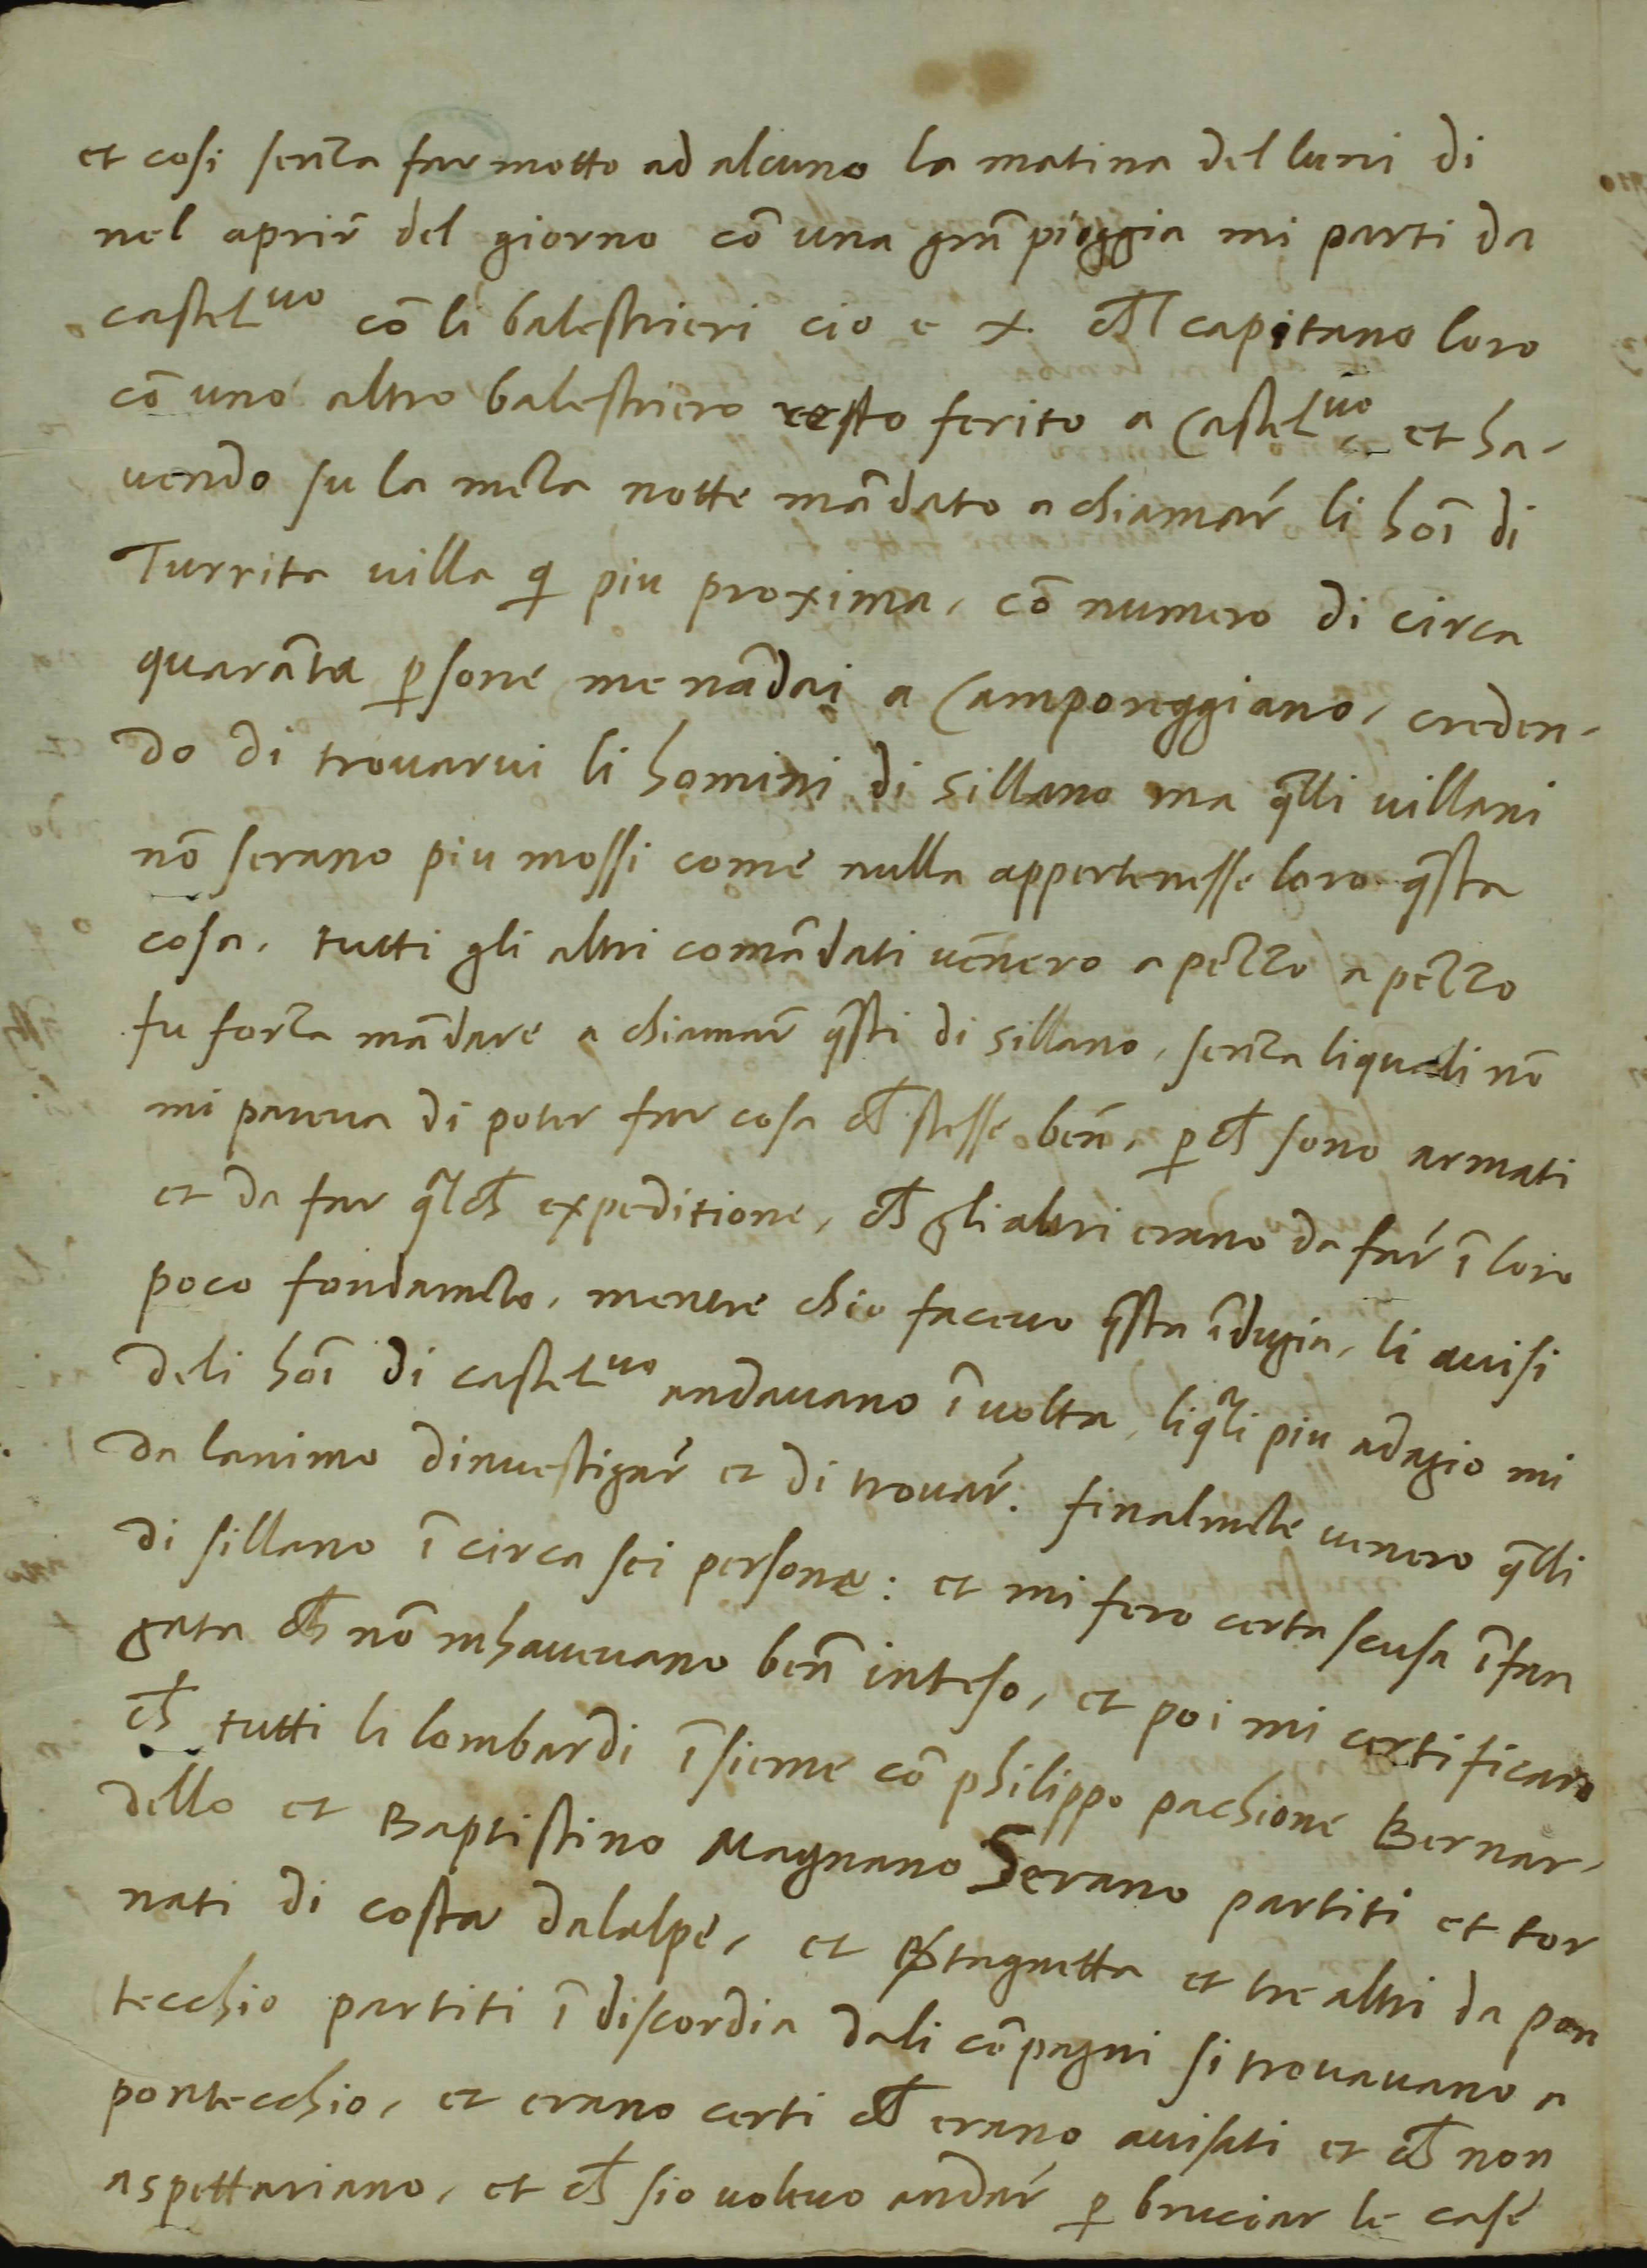 et cosi senza far motto ad alcuno la matina del luni di
nel aprir̃ del giorno cõ una grã pioggia mi parti da
castelᵘᵒ cõ li balestrieri cio e x. ch̃l capitano loro
cõ uno altro balestriero resto ferito a Castelᵘᵒ, et ha,
uendo su la mẽza notte mãdato a chiamar̃ li hoĩ di
Turrita uilla q̃ piu proxima, cõ numero di circa
quarãta p̱sone me nãdai a Camporeggiano, creden,
do di trouarui li homini di sillano ma q̃lli uillani
nõ serano piu mossi come nulla appertenesse loro q̃sta
cosa. tutti gli altri comãdati uẽnero a pezzo a pezzo
fu forza mãdare a chiamar̃ q̃sti di sillano, senza liquali nõ
mi pareua di poter far cosa ch̃ stesse beñ, p̱ch̃ sono armati
et da far q̃lch̃ expeditione, ch̃ gli altri erano da far̃ ĩ loro
poco fondamẽto, mentre chio faceuo q̃sta ĩdugia, li auisi
deli hoĩ di castelᵘᵒ andauano ĩ uolta, liq̃li piu adagio mi
da lanimo dinuestigar̃ et di trouar̃. finalmẽte uenero q̃lli
di sillano ĩ circa sei persone: et mi fero certa scusa ĩfan
gata ch̃ nõ mhaueuano beñ inteso, et poi mi certificaro
ch̃ tutti li lombardi ĩsieme cõ philippo pachione Bernar,
dello et Baptistino Magnano Serano partiti et tor
nati di costa dalalpe, et tagnetta et tre altri da pon
tecchio partiti ĩ discordia dali cõpagni si trouauano a
pontecchio, et erano certi ch̃ erano auisati et ch̃ non
aspettariano, et ch̃ sio uoleuo andar̃ p̱ bruciar le case